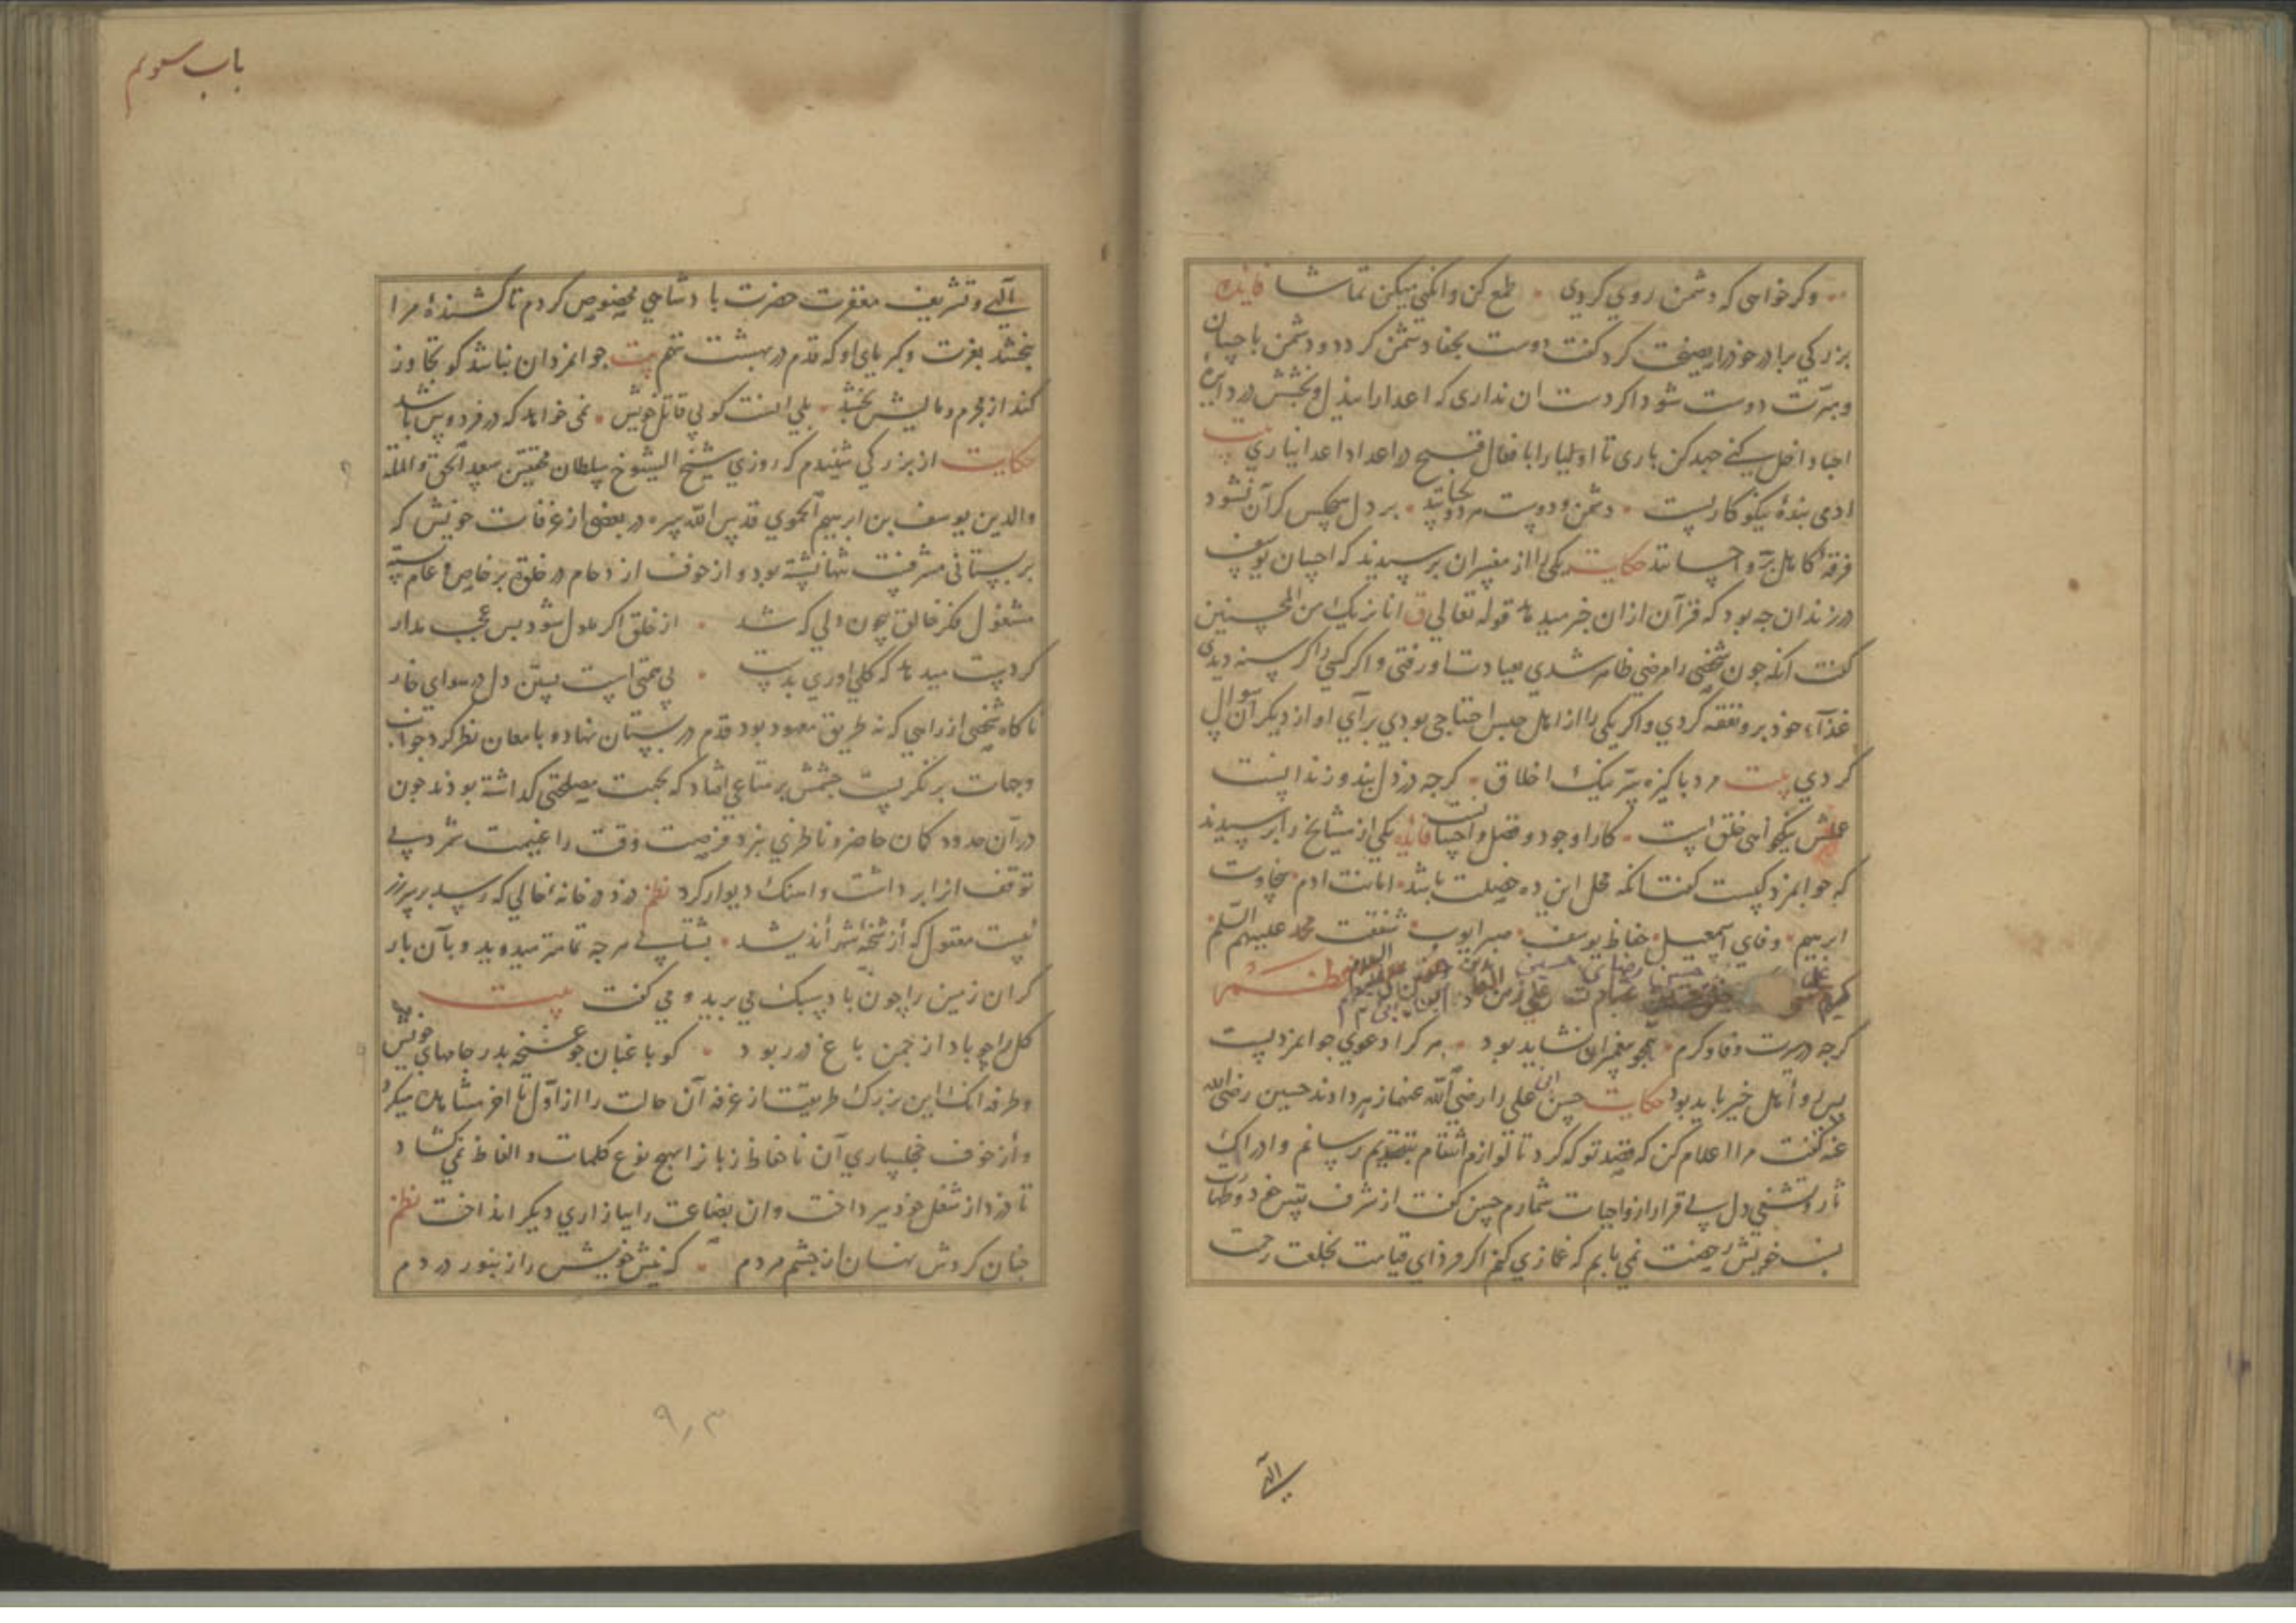 وکر خواهی که دشمن روی کردی طمع کن وانکهی میکن تماشا فایده
بزرکی برادر خود را وصیت کرد کفت دوست بجفا دشمن کردد و دشمن باحسان
ومبرّت دوست شود اکر دست ان نداری که اعدا را ببذل و بخشش در دایرهٔ
احبا داخل کنی جهد کن باری تا اولیا را بافعال قبیح در اعداد اعدا نیاری بیت
ادمی بندهٔ نیکو کاریست دشمن و دوست بر دل هیچکس کران نشود
فرقهٔ کامل برّ و احسانند حکایت یکی را از مفسران پرسیدند که احسان یوسف
در زندان چه بود که قرآن ازان خبر میدهد قوله تعالی ق انا نریک من المحسنین
کفت انکه چون شخصی را مرضی ظاهر شدی بعیادت او رفتی و اکر کسی را کرسنه دیدی
غذآء خود برو نفقه کردی و اکر یکی را از اهل حبس احتیاجی بودی برآی او از دیکران سوال
کردی بیت مرد باکیزه سیرت نیک اخلاق کرچه در ذل بند و زندانست
عملش نیکخواهی خلق است کار او جود و فضل و احسانست فایده یکی از مشایخ را پرسیدند
که جوانمرد کیست کفت انکه محل این ده خصلت باشد امانت ادم سخاوت
ابرهیم وفای اسمعیل حفاظ یوسف صبر ایوب شفقت محمد علیهم السّلم
کرچه در سیرت وفا و کرم همچو پیغمبران نشاید بود هر کرا دعوی جوانمردیست
پس رو اهل خیر باید بود حکایت حسن ابن علی را رضی الله عنهما زهر دادند حسین رضی الله
عنه کفت مرا اعلام کن که قصد تو که کرد تا لوازم انتقام بتقدیم رسانم و ادراک
ثار و تشفی دل بی قرار از واجبات شمارم حسن کفت از شرف نفس خود و طهارت
نسب خویش رخصت نمی یابم که غمازی کنم اکر فردای قیامت بخلعت رحمت
الهی
باب سوم
آلهی و تشریف مغفرت حضرت بادشاهی مخصوص کردم تا کشندهٔ مرا
نبخشد بعزت و کبریای او که قدم در بهشت ننهم بیت جوانمرد ان نباشد کو تجاوز
کند از مجرم و مالیش بخشد بلی انست کو بی قاتل خویش نمی خواهد که در فردوس باشد
حکایت از بزرکی شنیدم که روزی شیخ الشیوخ سلطان محققین سعد الحق والملة
والدین یوسف بن ابرهیم الحموی قدس الله سره در بعضی از غرفات خویش که
بر بستانی مشرفست تنها نشسته بود و از خوف ازدحام در خلوة بر خاص و عام بسته
مشغول فکر خالق چون دلی که شد از خلق اکر ملول شود بس عجب مدار
کر دست میدهد که کلی اوری بدست بی همتی است بستن دل در هوای خار
ناکاه شخصی از راهی که نه طریق معهود بود قدم در بستان نهاد و بامعان نظر کرد جوانب
وجهات برنکریست جشمش بر متاعی افتاد که بجهت مصلحتی کذاشته بودند جون
در آن حدود کمان حاضر و ناظری نبرد فرصت وقت را غنیمت شمرد بی
توقف انرا بر داشت و اهنک دیوار کرد نظم دزد در خانهٔ خالی که رسد بر سر زر
نیست معقول که از شحنهٔ شهر اندیشد بشتابی هرچه تمامتر میدوید و بآن بار
کران زمین را چون باد سبک می برید و می کفت بیت
کل را چو باد از جمن باغ در ربود کو باغبان جو غنچه بدر جامهای خویش
وطرفه انک این بزرک طریقت از غرفه آن حالت را از اوّل تا اخر مشاهده میکرد
و از خوف خجلساری آن ناحفاظ زبانرا بهیچ نوع کلمات و الفاظ نمی کشاد
تا دزد از شغل خود ببرداخت وان بضاعت را ببازاری دیکر انداخت نظم
جنان کردش نهان از جشم مردم که نیش خویش را زنبور در دم
۹۳